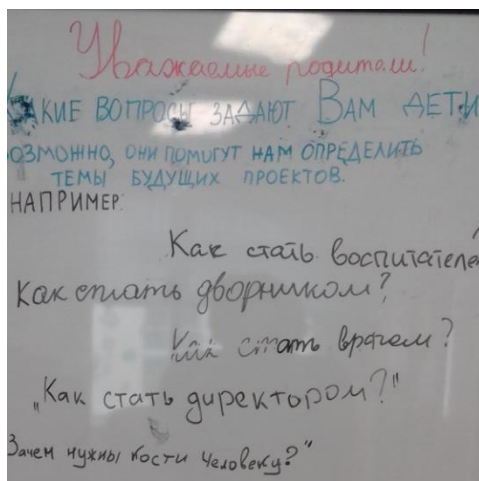 Уважаемые родители!
КАКИЕ ВОПРОСЫ ЗАДАЮТ ВАМ ДЕТИ
ОЗМОЖНО, ОНИ ПОМОГУТ НАМ ОПРЕДЕЛИТЬ
ТЕМЫ БУДУЩИХ ПРОЕКТОВ.
НАПРИМЕР:
Как стать воспитателе
Как стать дворником?
Как стать врачом?
„Как стать директором?"
Зачем нужны кости человеку?"